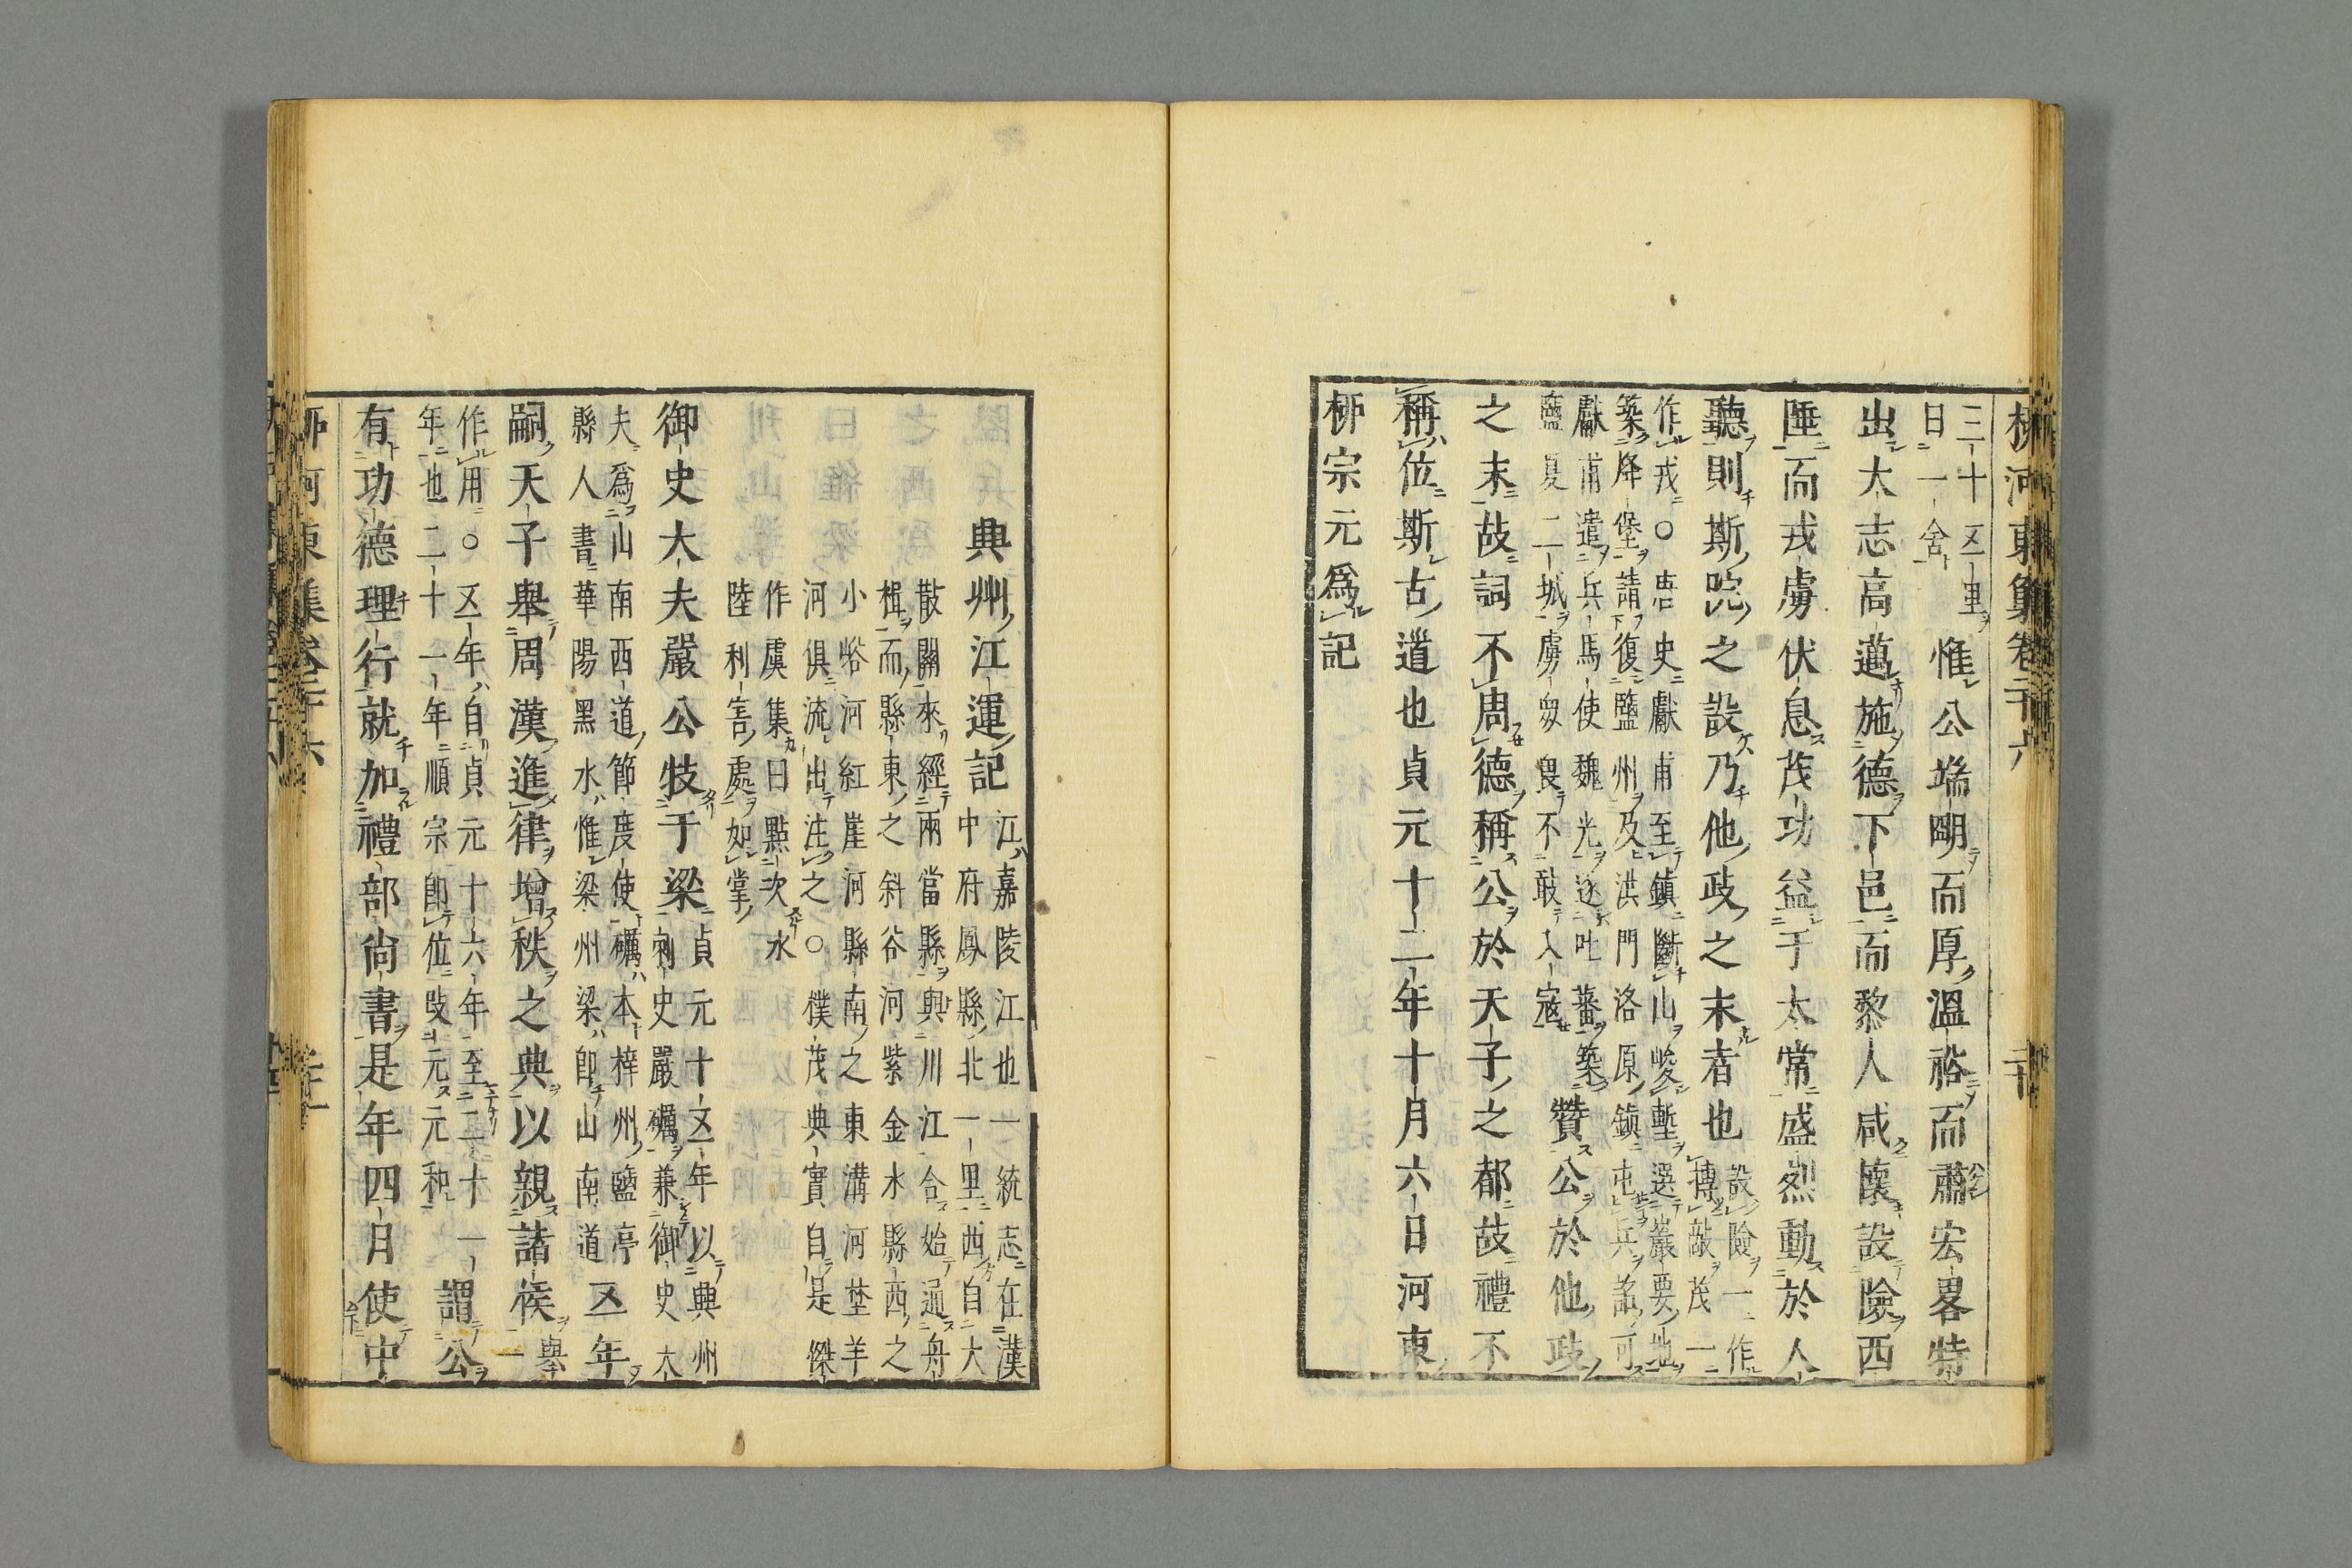 柳河東集卷二十六
三十五里
日一舍
惟公端明而厚溫裕而肅宏畧特
出大志高邁施德下邑而黎人咸懷設險西
陲而戎虜伏息茂功益于太常盛烈動於人
聽則斯院之設乃他政之末者也
設險一作
摶敵茂一
作戎○唐史獻甫至鎮斷山峻塹選嚴要地
築烽堡請復鹽州及洪門洛原鎮屯兵詔可
獻甫遣兵馬使魏光逐吐蕃築
鹽夏二城虜衆畏不敢入寇
贊公於他政
之末故詞不周德稱公於天子之都故禮不
稱位斯古道也貞元十二年十月六日河東
柳宗元爲記
興州江運記
江嘉陵江也一統志在漢
中府鳳縣北一里西自大
散關來經兩當縣與川江合始通舟
楫而縣東之斜谷河紫金水縣西之
小峪河紅崖河縣南之東溝河埜羊
河俱流出注之○樸茂典實自是傑
作虞集曰點次水
陸利害處如掌
御史大夫嚴公牧于梁
貞元十五年以興州
刺史嚴礪兼御史大
夫爲山南西道節度使礪本梓州鹽亭
縣人書華陽黑水惟梁州梁卽山南道
五年
嗣天子舉周漢進律增秩之典以親諸侯
舉一
作用○五年自貞元十六年至二十一
年也二十一年順宗卽位改元元和
謂公
有功德理行就加禮部尚書是年四月使中
柳河東集卷二十六
二十一